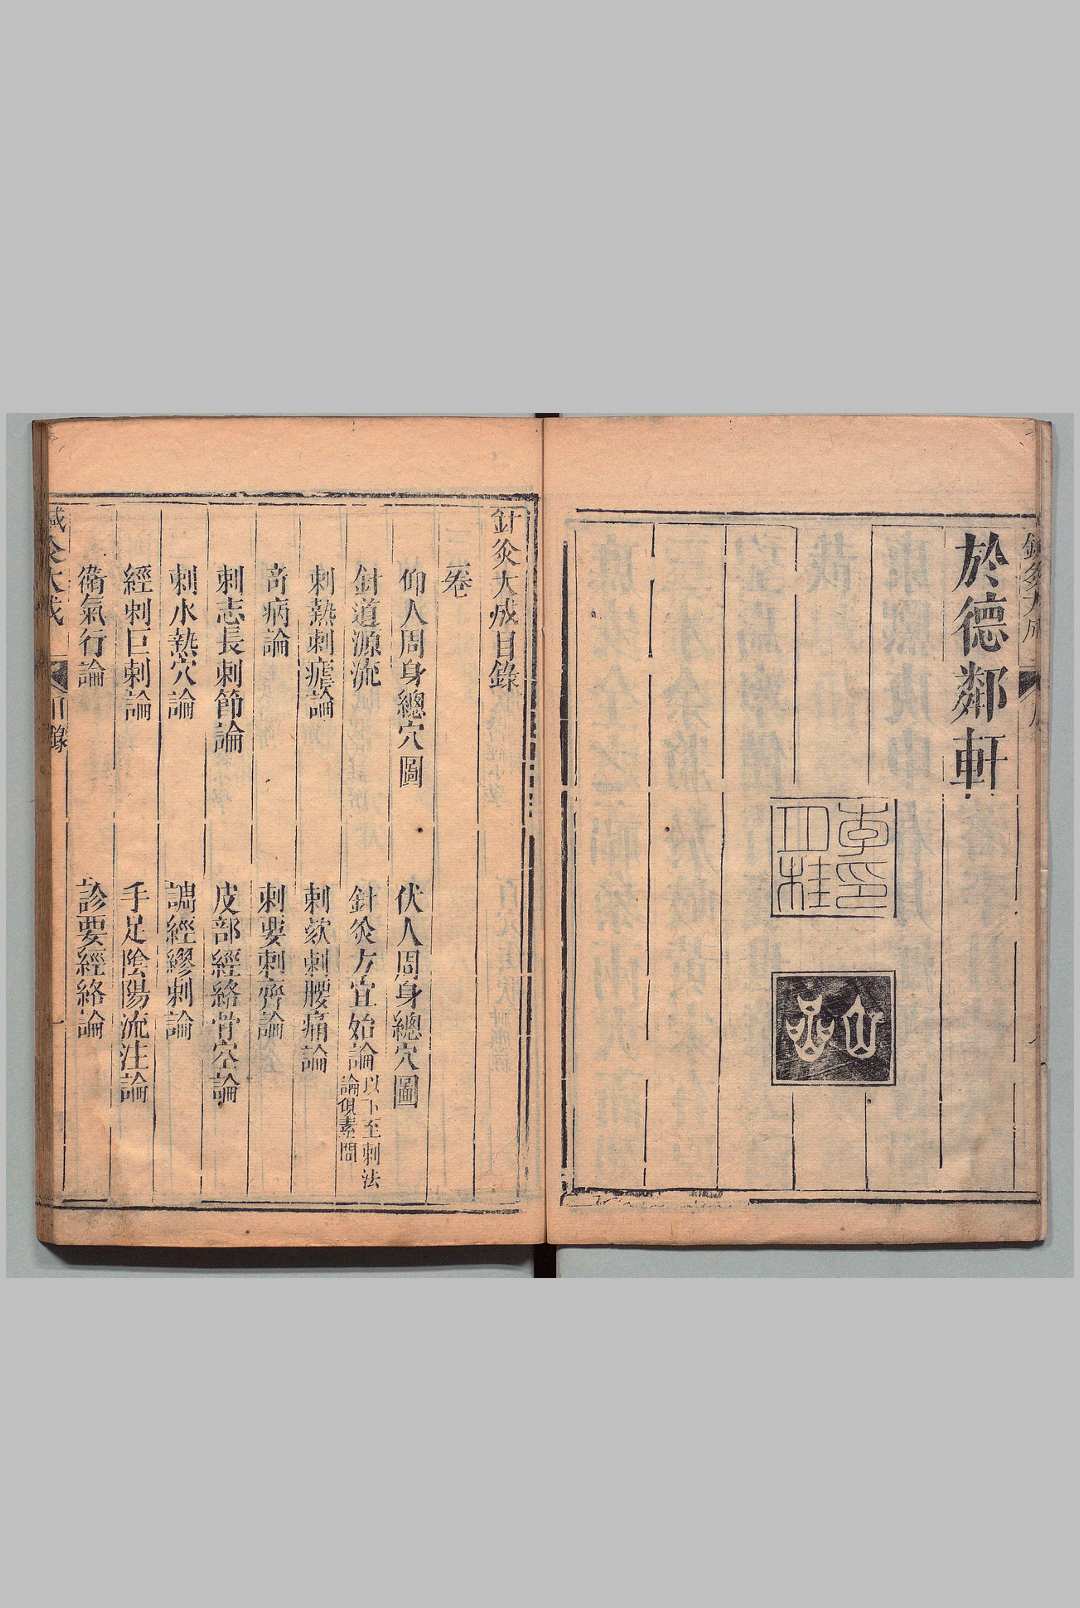 於德鄰軒
李印
月桂
針灸大成目錄
一卷
仰人周身總穴圖
伏人周身總穴圖
針道源流
針灸方宜始論
以下至刺法
論俱素問
刺熱刺瘧論
刺欬刺腰痛論
奇病論
刺要刺齊論
刺志長刺節論
皮部經絡骨空論
刺水熱穴論
調經繆刺論
經刺巨刺論
手足陰陽流注論
衛氣行論
診要經絡論